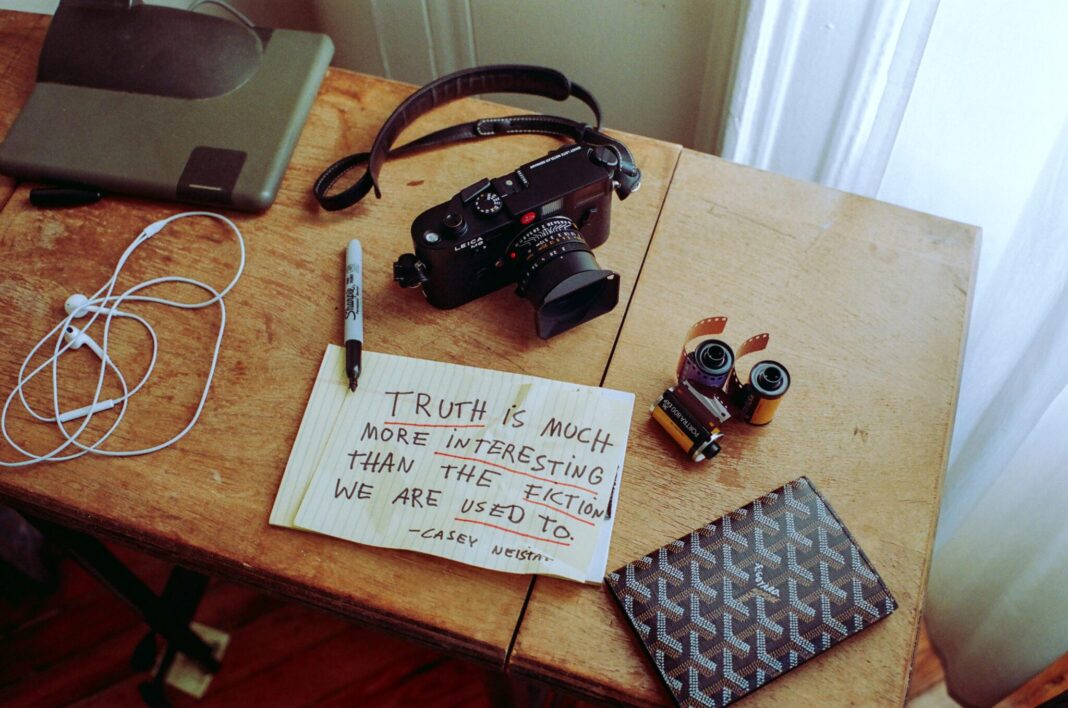 LEICA
Sharpie
PORTRA 800
TRUTH is MUCH
MORE INTERESTING
THAN THE FICTION
WE ARE USED TO.
-CASEY